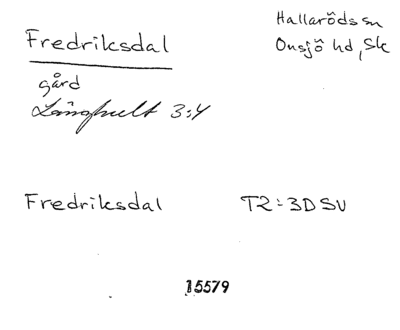 Fredriksdal
Hallaröds sn
Onsjö hd, Sk
gård
Långhult 3:4
Fredriksdal T2:3D SV
15579